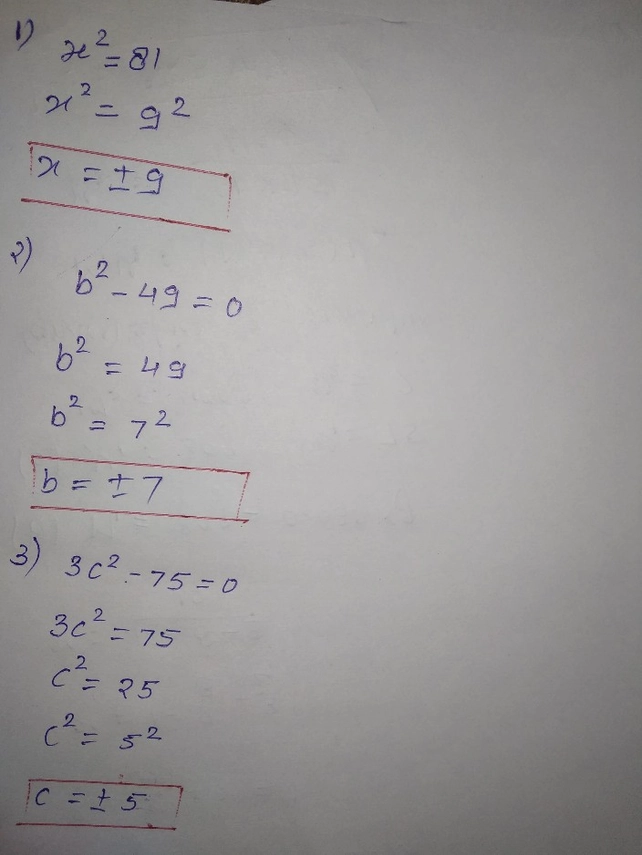 1)
x² = 81
x² = 9²
x = ±9
2)
b² - 49 = 0
b² = 49
b² = 7²
b = ±7
3) 3c² - 75 = 0
3c² = 75
c² = 25
c² = 5²
c = ±5